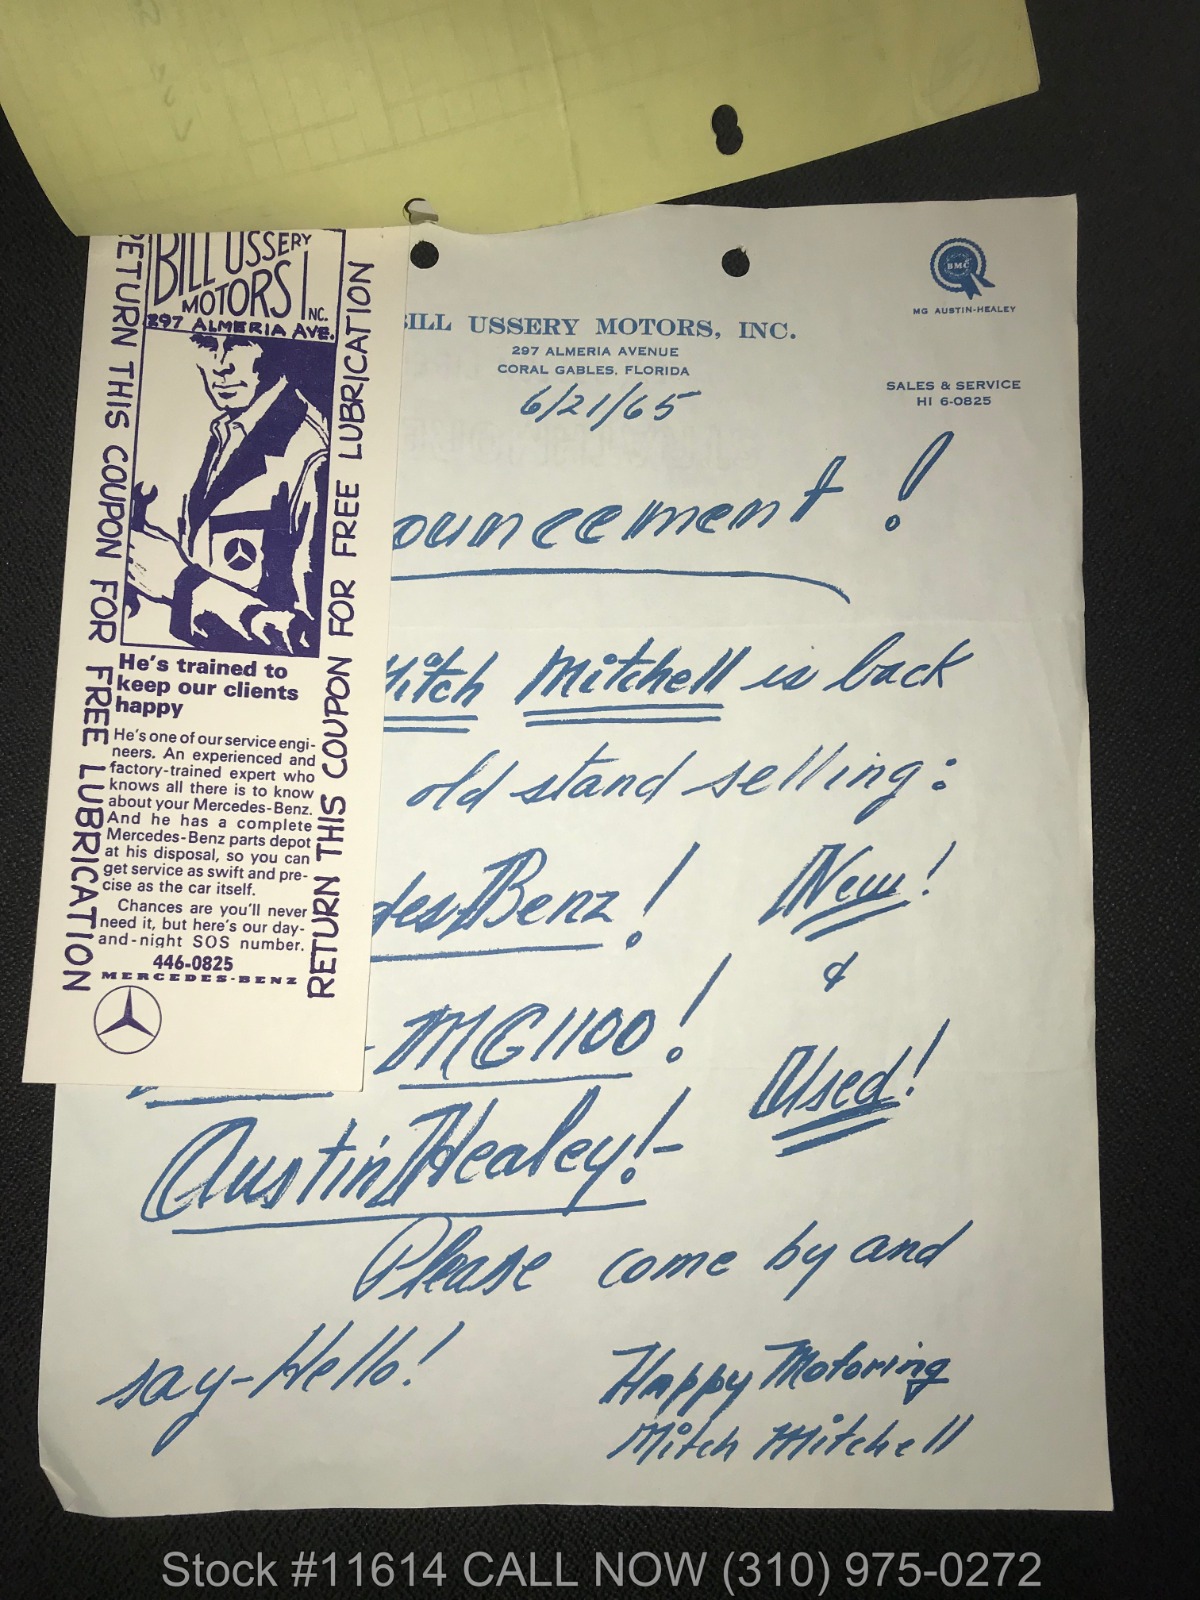 BILL USSERY
MOTORS INC.
297 ALMERIA AVE.
RETURN THIS COUPON FOR FREE LUBRICATION
RETURN THIS COUPON FOR FREE LUBRICATION
He's trained to
keep our clients
happy
He's one of our service engi-
neers. An experienced and
factory-trained expert who
knows all there is to know
about your Mercedes-Benz.
And he has a complete
Mercedes-Benz parts depot
at his disposal, so you can
get service as swift and pre-
cise as the car itself.
Chances are you'll never
need it, but here's our day-
and-night SOS number.
446-0825
MERCEDES-BENZ
BMC
MG AUSTIN-HEALEY
BILL USSERY MOTORS, INC.
297 ALMERIA AVENUE
CORAL GABLES, FLORIDA
SALES & SERVICE
HI 6-0825
6/21/65
ouncement!
Mitch Mitchell is back
old stand selling:
des-Benz! New!
&
-MG1100! Used!
Austin Healey!-
Please come by and
say-Hello!
Happy Motoring
Mitch Mitchell
Stock #11614 CALL NOW (310) 975-0272